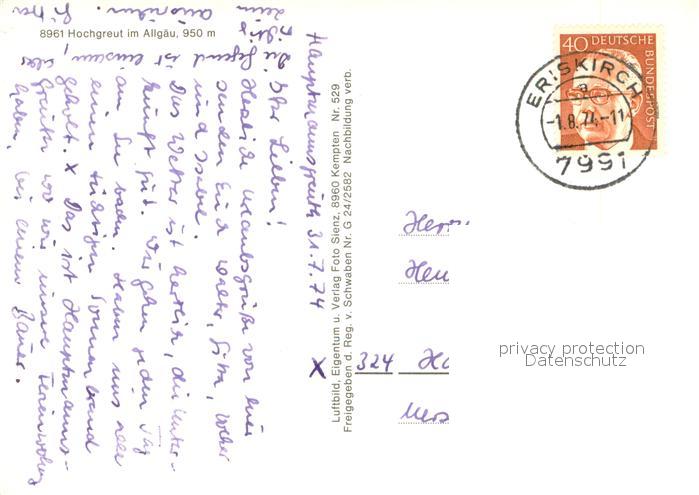 8961 Hochgreut im Allgäu, 950 m
Hauptmannsgreuth 31.7.74
Ihr Lieben!
Herzliche Urlaubsgrüße von hier
senden Euch Walter, Gitta, Volker
und Isabel.
Das Wetter ist herrlich, die Unter-
kunft gut. Wir gehen jeden Tag
am See baden. Haben uns alle
einen tüchtigen Sonnenbrand
geholt. x Das ist Hauptmanns-
greuth wo wir unsere Ferienwohnung
haben, bei einem Bauer.
Die Gegend ist einsam, aber
zum
Luftbild, Eigentum u. Verlag Foto Sienz, 8960 Kempten Nr. 529
Freigegeben d. Reg. v. Schwaben Nr. G 24/2582 Nachbildung verb.
x
40 DEUTSCHE
BUNDESPOST
ERISKIRCH
a
-1.8.74.-11
7991
324
privacy protection
Datenschutz